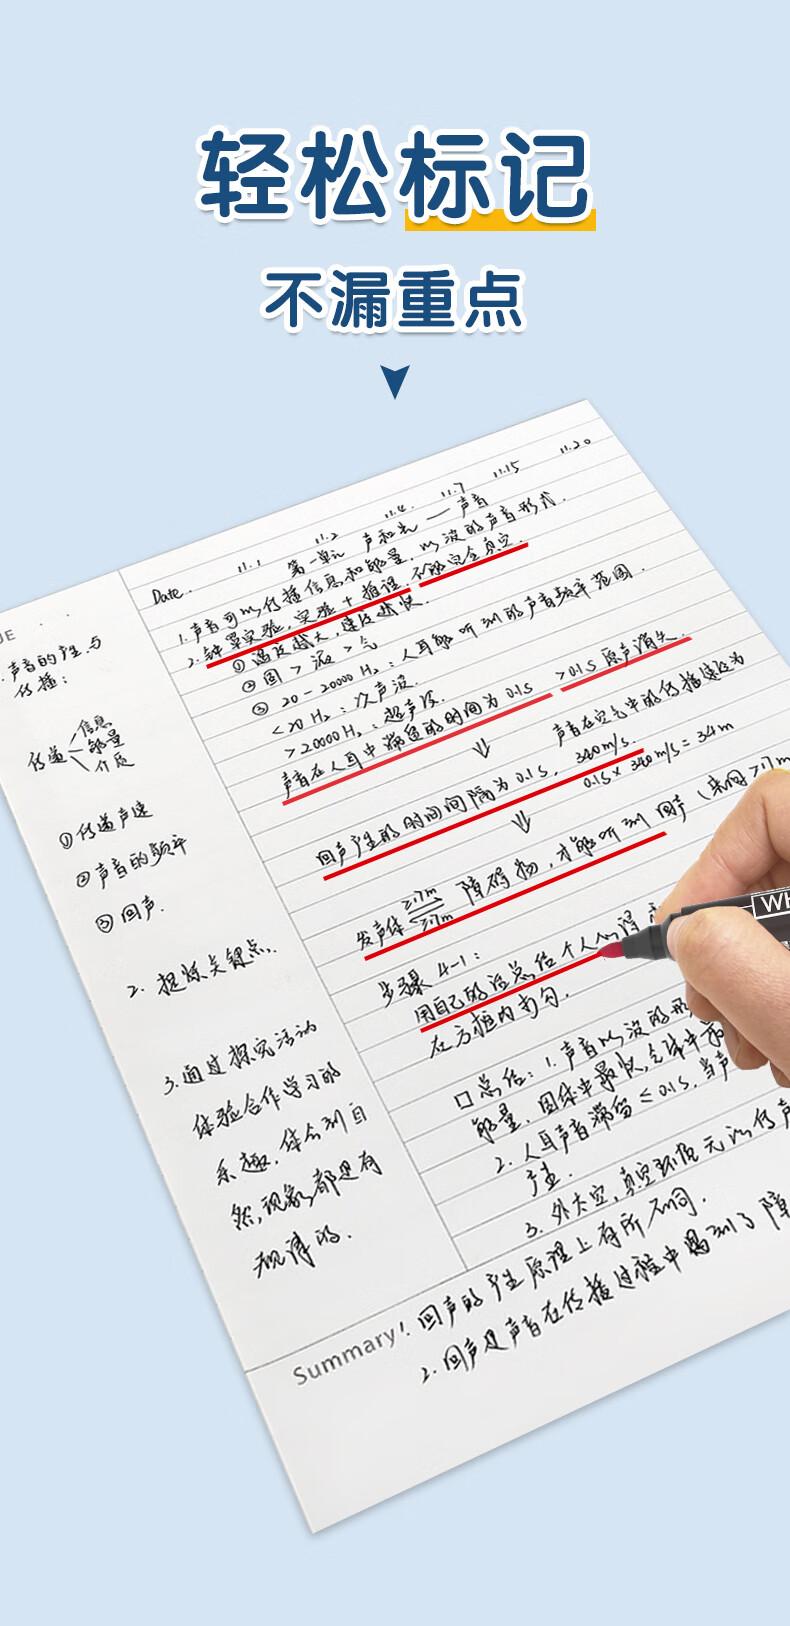 轻松标记
不漏重点
Date.
11.1
11.2
11.4.
11.7
11.15
11.20
第一单元 声和光 — 声音
1. 声音可以传播信息和能量, 以波的声音形式.
2. 钟罩实验, 实验+推理, 不能完全真空.
① 温度越大, 速度越快.
② 固>液>气
③ 20-20000Hz: 人耳能听到的声音频率范围.
<20Hz: 次声波.
>20000Hz: 超声波.
声音在人耳中滞留的时间为0.1s >0.1s 原声消失
声音在空气中的传播速度为
回声产生的时间间隔为0.1s, 340m/s.
0.1s×340m/s=34m
发声体 ≥17m 障碍物, 才能听到回声 (来回≥17m
≥17m
步骤4-1:
用自己的话总结个人心得
在方框内写句.
口总结: 1. 声音以波的形
能量, 固体中最快, 气体中最
2. 人耳声音滞留≤0.1s, 当声
产生.
3. 外太空, 真空环境无法传声
UE
1. 声音的产生与
传播:
传递 信息
能量
介质
① 传递声速
② 声音的频率
③ 回声.
2. 提炼关键点.
3. 通过探究活动
体验合作学习的
乐趣. 体会到自
然, 现象都是有
规律的.
Summary! 回声的产生原理上有所不同.
2. 回声是声音在传播过程中遇到了障
WH